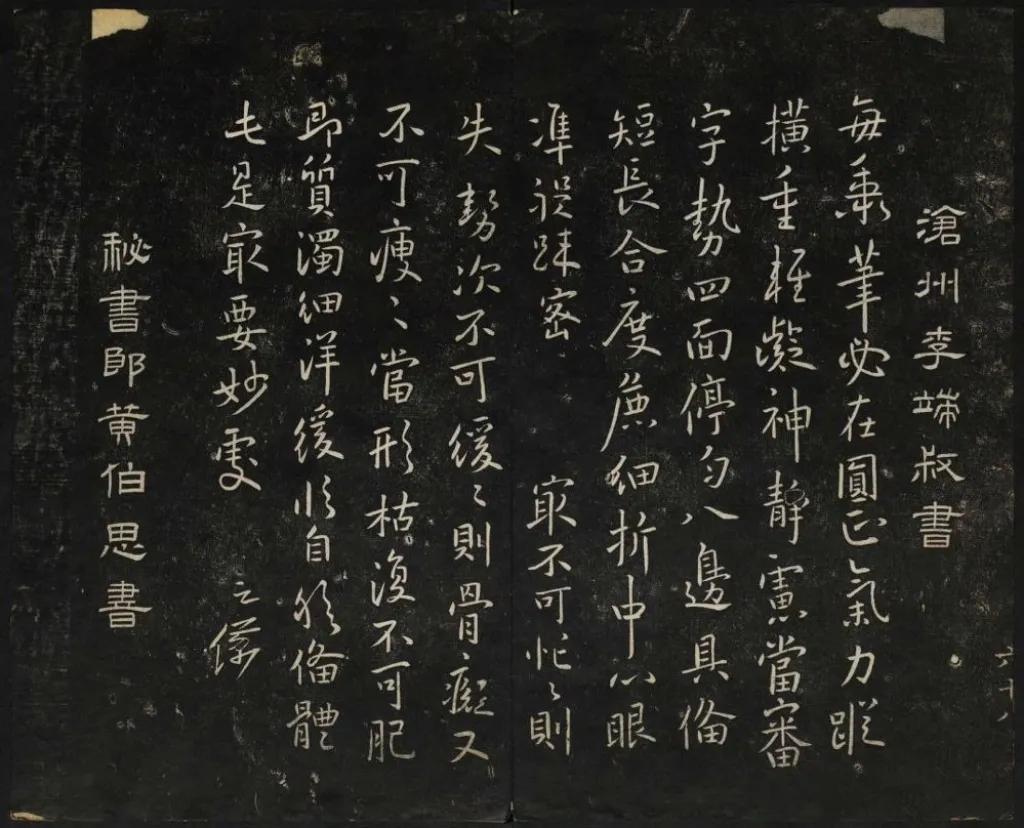 滄州李端叔書
六十八
每秉筆必在圓正氣力蹤
橫重輕凝神靜慮當審
字勢四面停勻八邊具俻
短長合度麁細折中心眼
準程踈密 冣不可忙〻則
失勢次不可緩〻則骨癡又
不可瘦〻當形枯復不可肥
即質濁細詳緩臨自然俻體
此是冣要妙處 之儀
秘書郎黃伯思書